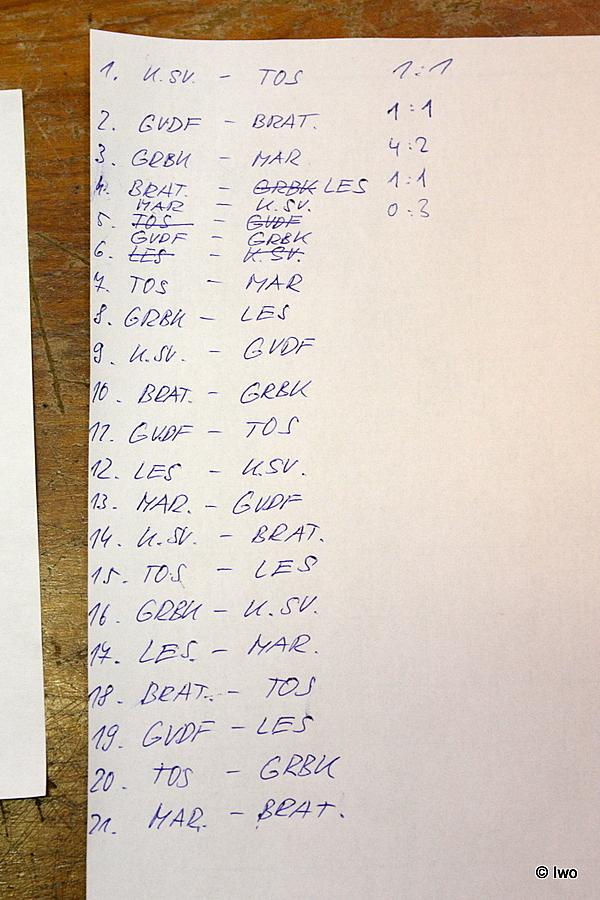 1. K.SV. - TOS 1:1
2. GVDF - BRAT. 1:1
3. GRBK - MAR 4:2
4. BRAT. - GRBK LES 1:1
MAR - K.SV. 0:3
5. TOS - GVDF
GVDF - GRBK
6. LES - K.SV.
7. TOS - MAR
8. GRBK - LES
9. K.SV. - GVDF
10. BRAT. - GRBK
11. GVDF - TOS
12. LES - K.SV.
13. MAR. - GVDF
14. K.SV. - BRAT.
15. TOS - LES
16. GRBK - K.SV.
17. LES. - MAR.
18. BRAT. - TOS
19. GVDF - LES
20. TOS - GRBK
21. MAR. - BRAT.
© Iwo